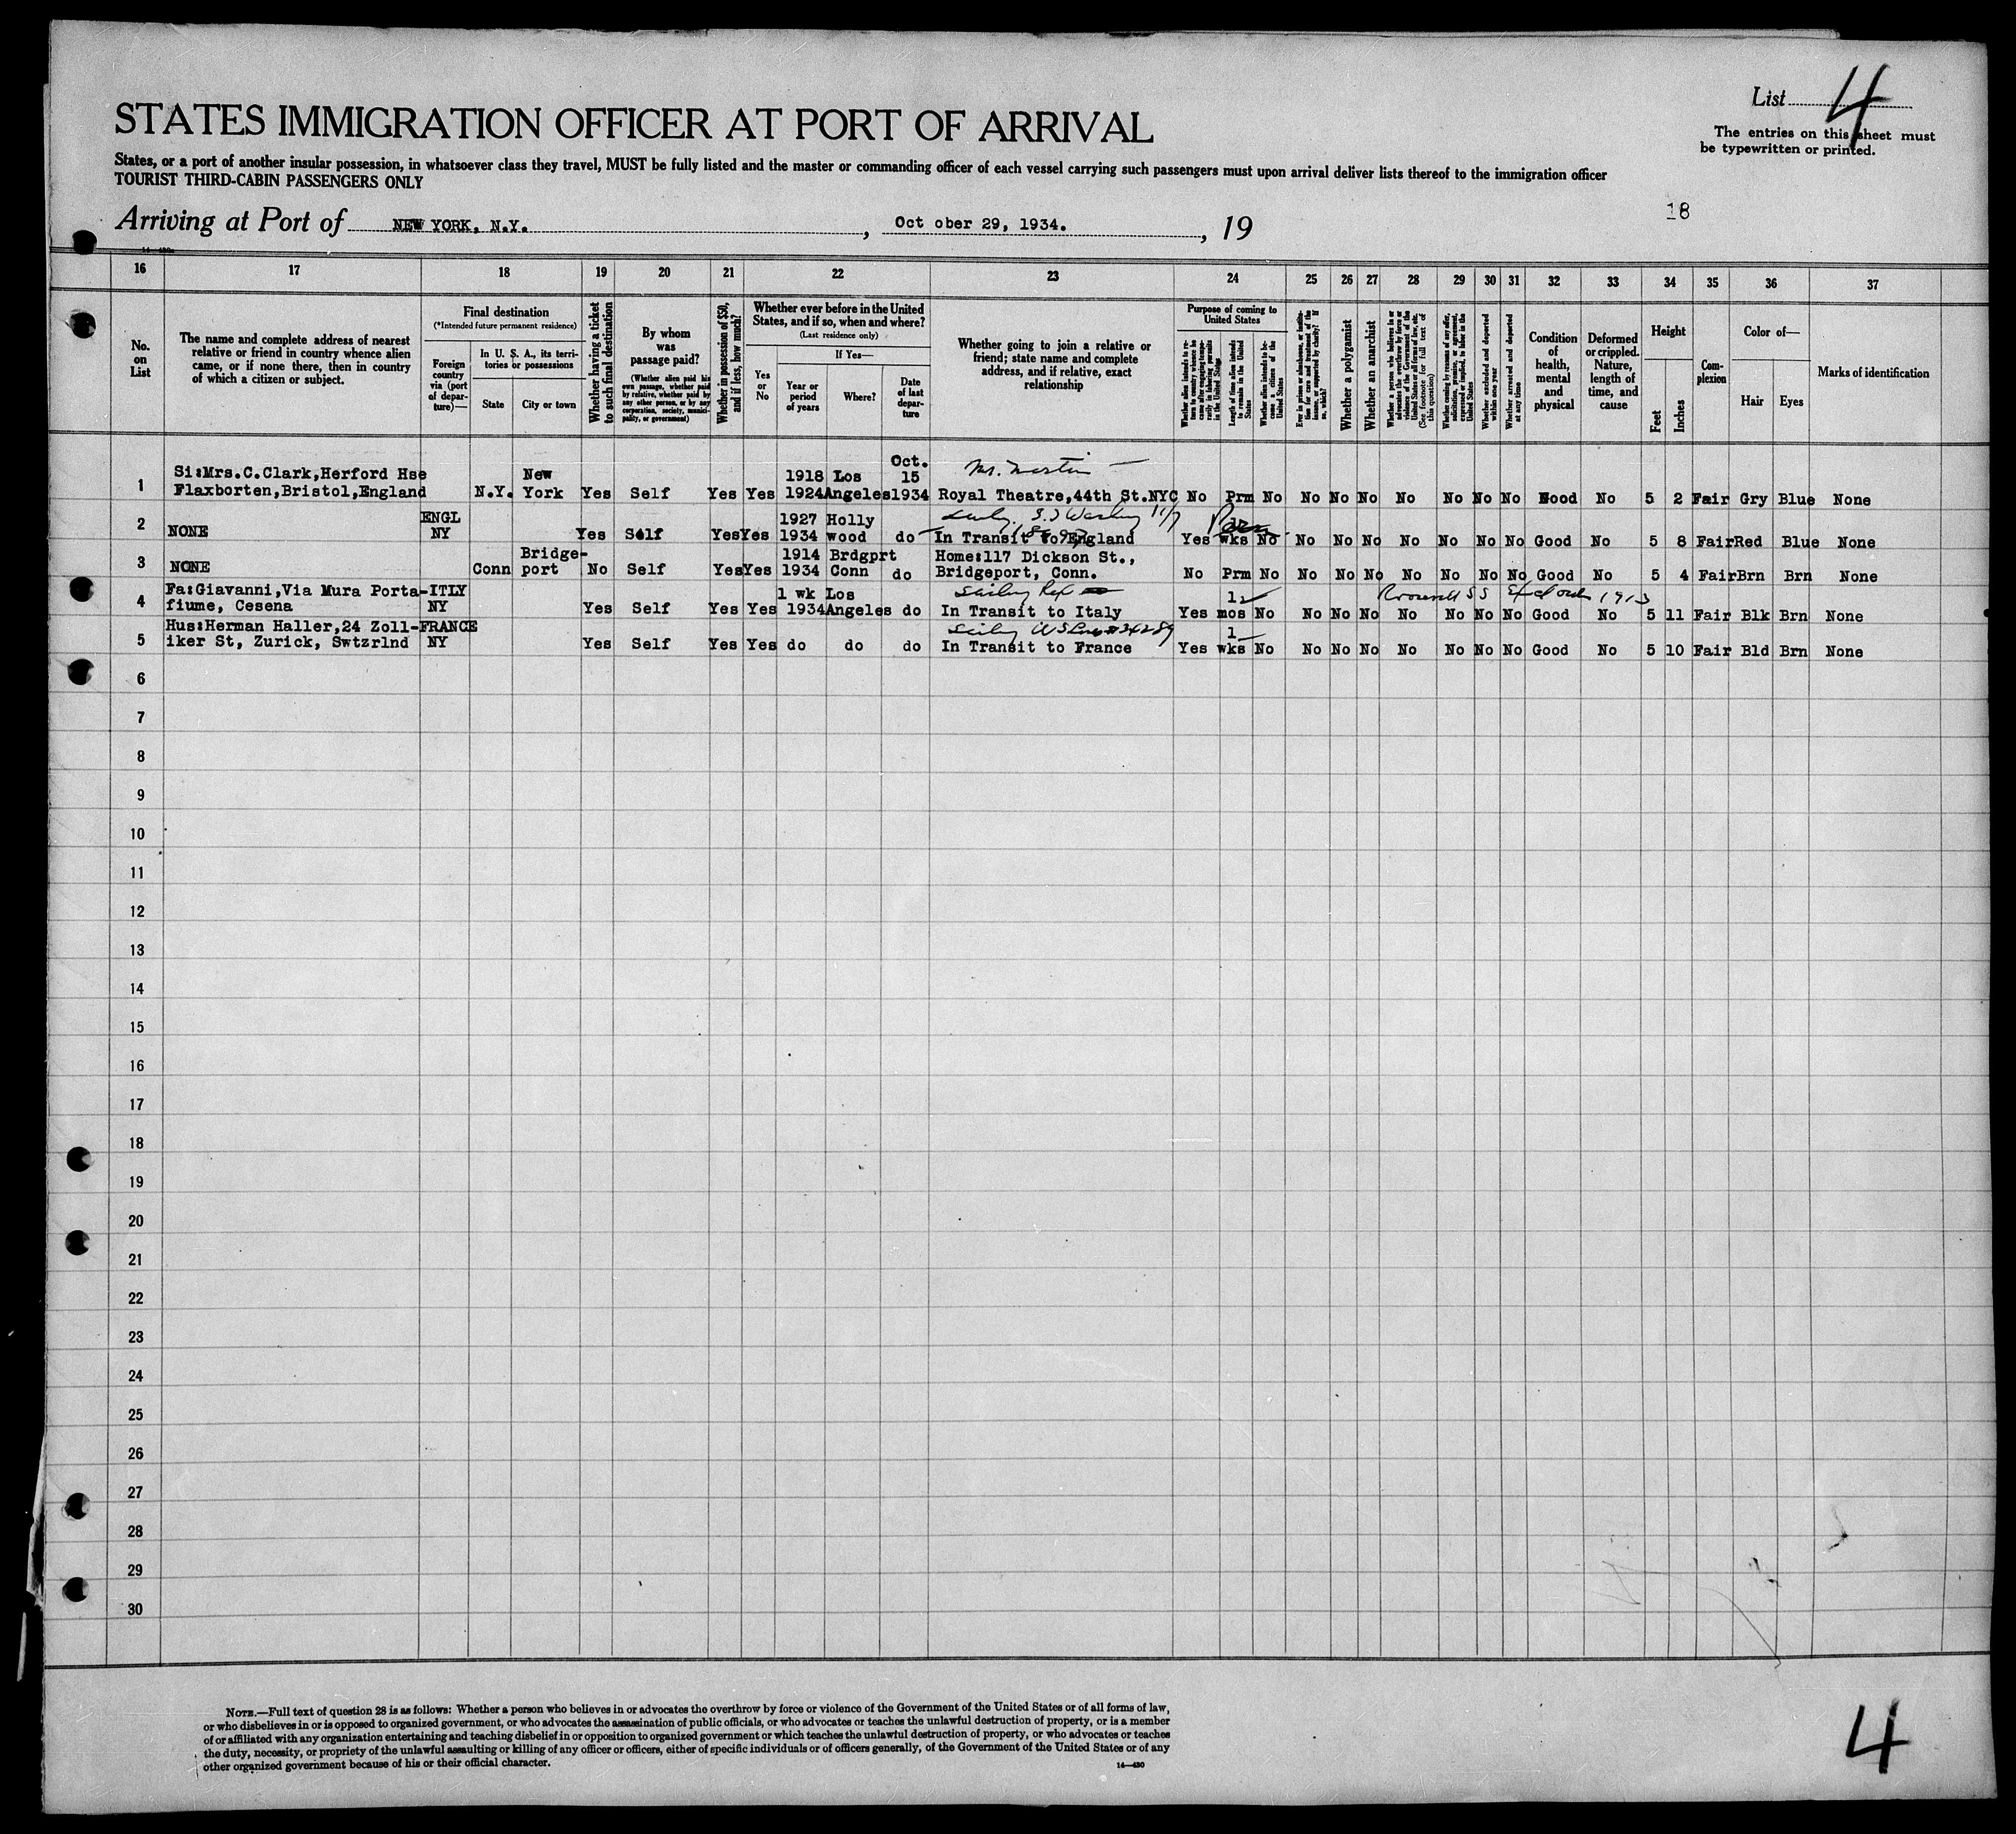 List 4
STATES IMMIGRATION OFFICER AT PORT OF ARRIVAL
The entries on this sheet must
be typewritten or printed.
States, or a port of another insular possession, in whatsoever class they travel, MUST be fully listed and the master or commanding officer of each vessel carrying such passengers must upon arrival deliver lists thereof to the immigration officer
TOURIST THIRD-CABIN PASSENGERS ONLY
18
Arriving at Port of NEW YORK, N.Y. , Oct ober 29, 1934. , 19
14-430a
16 17 18 19 20 21 22 23 24 25 26 27 28 29 30 31 32 33 34 35 36 37
No. on List
The name and complete address of nearest
relative or friend in country whence alien
came, or if none there, then in country
of which a citizen or subject.
Final destination
(*Intended future permanent residence)
Foreign country via (port of departure)—
In U. S. A., its territories or possessions
State
City or town
Whether having a ticket to such final destination
By whom was passage paid?
(Whether alien paid his own passage, whether paid by relative, whether paid by any other person, or by any corporation, society, municipality, or government)
Whether in possession of $50, and if less, how much?
Whether ever before in the United States, and if so, when and where?
(Last residence only)
Yes or No
If Yes—
Year or period of years
Where?
Date of last departure
Whether going to join a relative or
friend; state name and complete
address, and if relative, exact
relationship
Purpose of coming to United States
Whether alien intends to return to country whence he came after engaging temporarily in laboring pursuits in the United States
Length of time alien intends to remain in the United States
Whether alien intends to become a citizen of the United States
Ever in prison or almshouse, or institution for care and treatment of the insane, or supported by charity? If so, which?
Whether a polygamist
Whether an anarchist
Whether a person who believes in or advocates the overthrow by force or violence of the Government of the United States or all forms of law, etc. (See footnote for full text of this question)
Whether coming by reason of any offer, solicitation, promise, or agreement, expressed or implied, to labor in the United States
Whether excluded and deported within one year
Whether arrested and deported at any time
Condition of health, mental and physical
Deformed or crippled. Nature, length of time, and cause
Height
Feet
Inches
Complexion
Color of—
Hair
Eyes
Marks of identification
Si:Mrs.C.Clark,Herford Hse New 1918 Los Oct. 15 Mr. Martin —
1 Flaxborten,Bristol,England N.Y. York Yes Self Yes Yes 1924 Angeles 1934 Royal Theatre,44th St.NYC No Prm No No No No No No No No Good No 5 2 Fair Gry Blue None
ENGL 1927 Holly
2 NONE NY Yes Self Yes Yes 1934 wood do In Transit to England Yes wks No No No No No No No No Good No 5 8 Fair Red Blue None
Bridge- 1914 Brdgprt Home:117 Dickson St.,
3 NONE Conn port No Self Yes Yes 1934 Conn do Bridgeport, Conn. No Prm No No No No No No No No Good No 5 4 Fair Brn Brn None
Fa:Giavanni,Via Mura Porta- ITLY 1 wk Los 1 1913
4 fiume, Cesena NY Yes Self Yes Yes 1934 Angeles do In Transit to Italy Yes mos No No No No No No No No Good No 5 11 Fair Blk Brn None
Hus:Herman Haller,24 Zoll- FRANCE 1
5 iker St, Zurick, Swtzrlnd NY Yes Self Yes Yes do do do In Transit to France Yes wks No No No No No No No No Good No 5 10 Fair Bld Brn None
6
7
8
9
10
11
12
13
14
15
16
17
18
19
20
21
22
23
24
25
26
27
28
29
30
NOTE.—Full text of question 28 is as follows: Whether a person who believes in or advocates the overthrow by force or violence of the Government of the United States or of all forms of law,
or who disbelieves in or is opposed to organized government, or who advocates the assassination of public officials, or who advocates or teaches the unlawful destruction of property, or is a member
of or affiliated with any organization entertaining and teaching disbelief in or opposition to organized government or which teaches the unlawful destruction of property, or who advocates or teaches
the duty, necessity, or propriety of the unlawful assaulting or killing of any officer or officers, either of specific individuals or of officers generally, of the Government of the United States or of any
other organized government because of his or their official character.
14—430
4